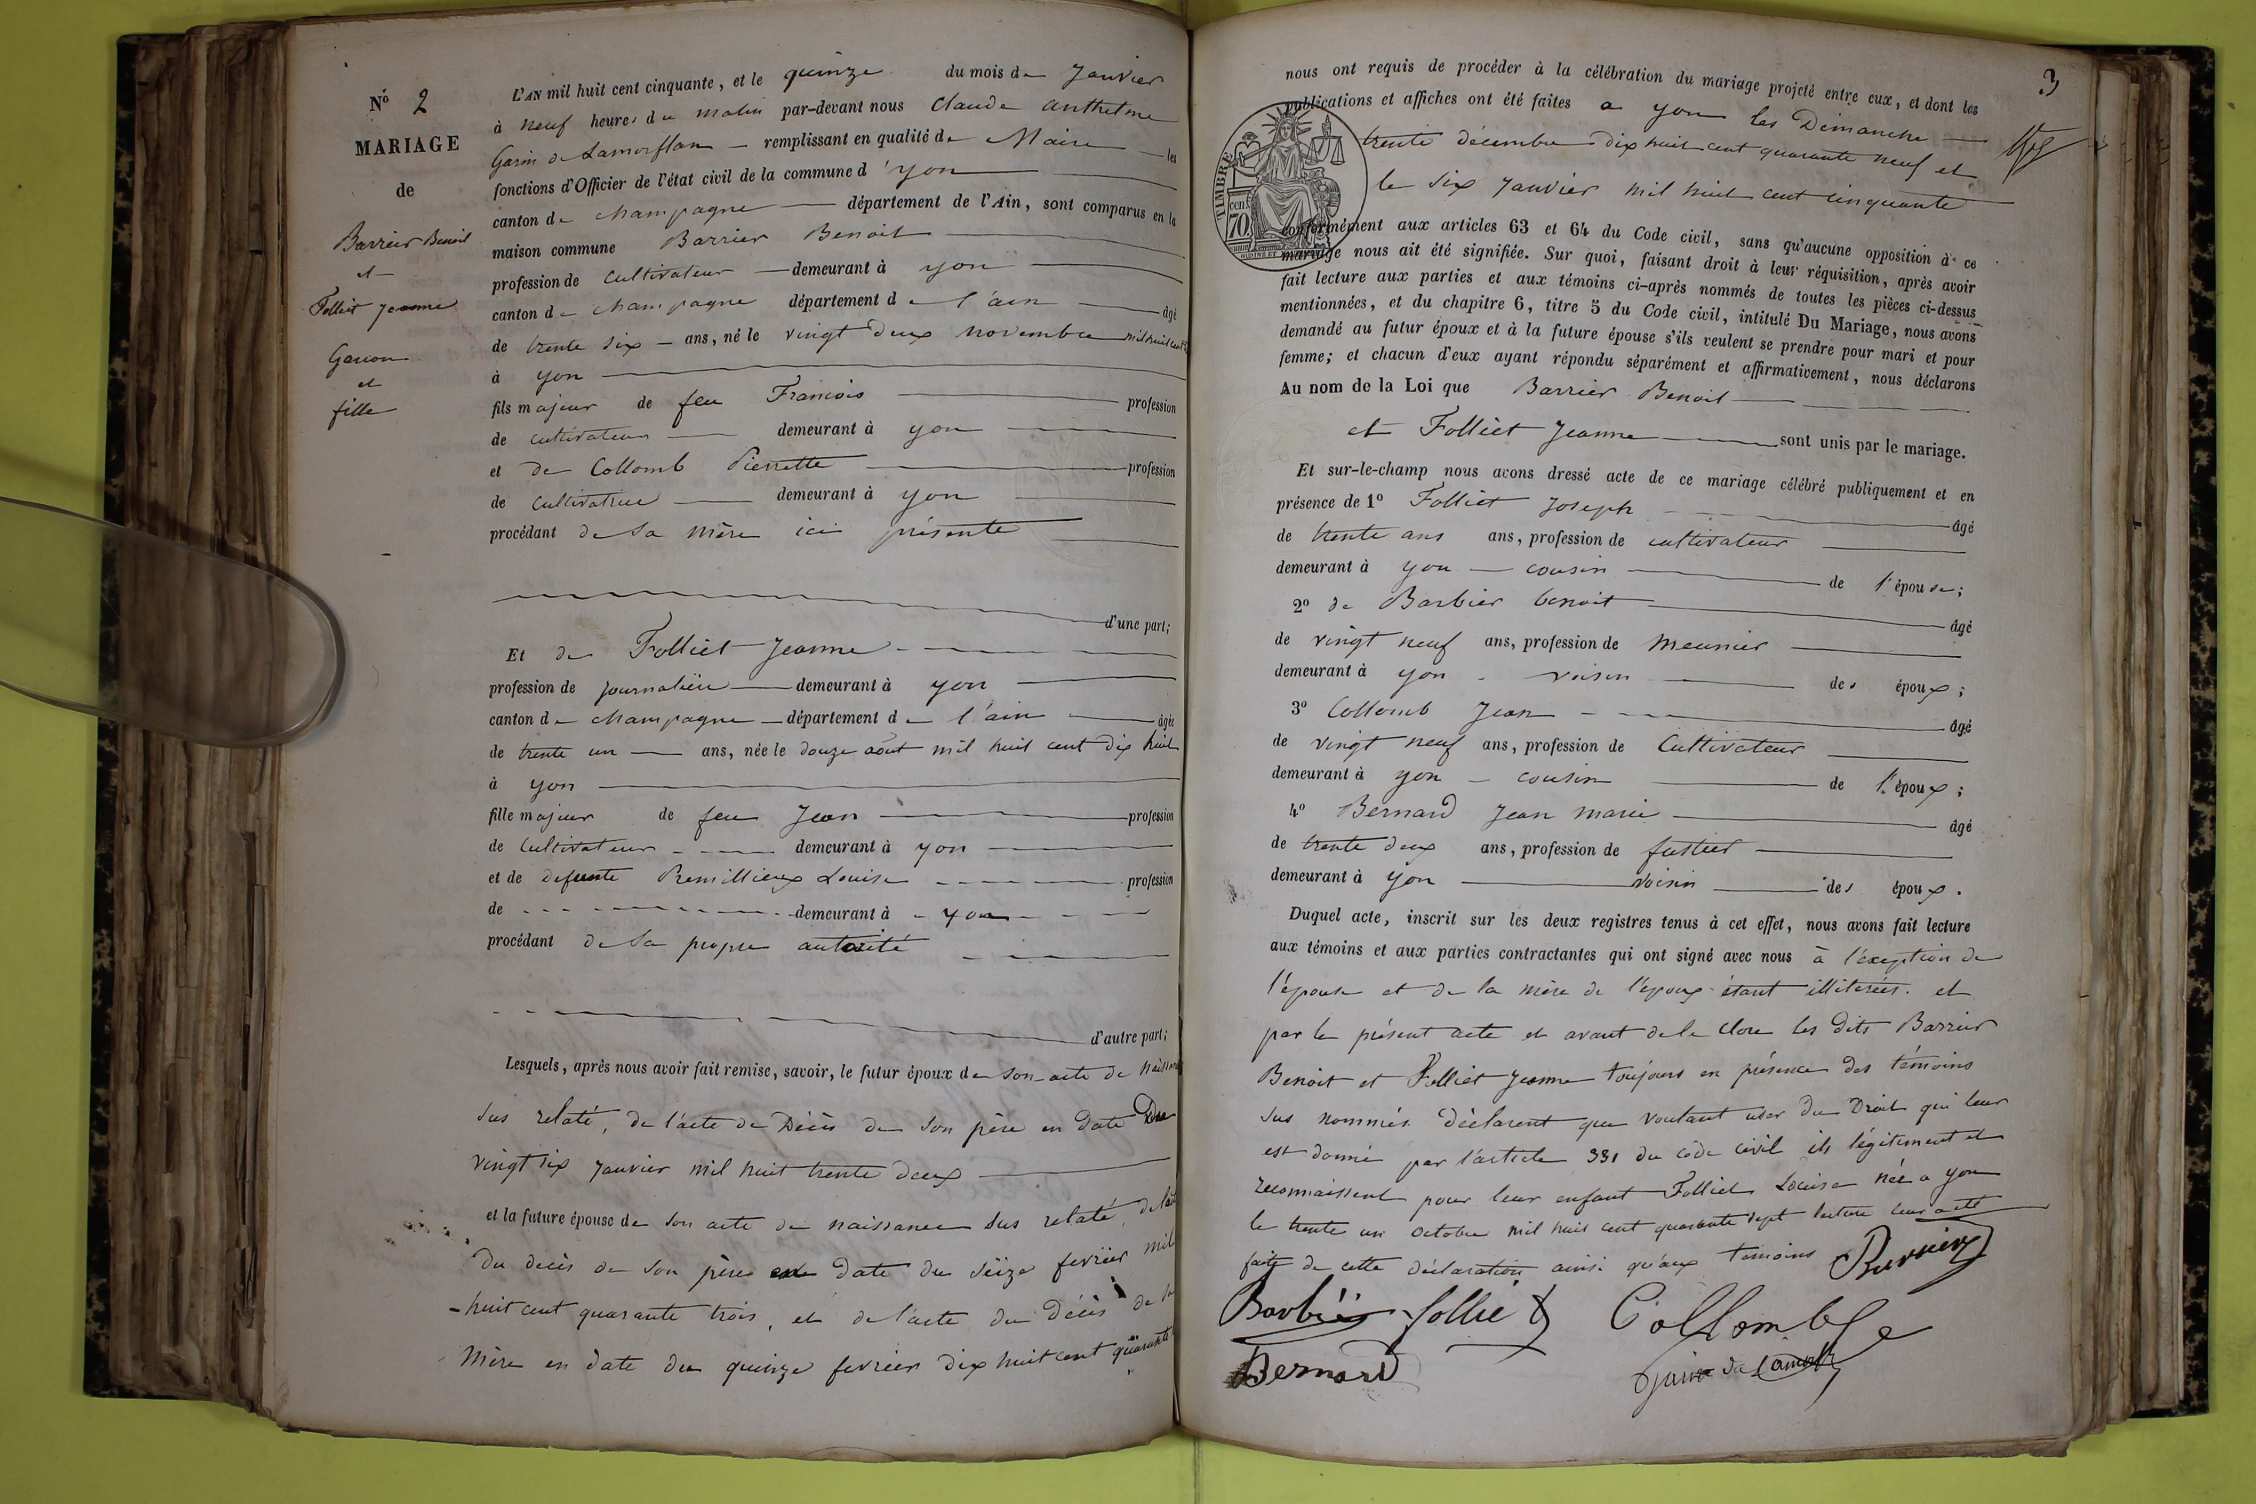 N° 2
MARIAGE
de
Barrier Benoit
et
Folliet Jeanne
Garcon
et
fille
L'AN mil huit cent cinquante, et le quinze du mois de Janvier
à neuf heures du matin par-devant nous Claude Anthelme
Garin de Lamorflan remplissant en qualité de Maire les
fonctions d'Officier de l'état civil de la commune d'yon
canton de champagne département de l'Ain, sont comparus en la
maison commune Barrier Benoit
profession de cultivateur demeurant à yon
canton de champagne département de l'ain âgé
de trente six ans, né le vingt deux novembre mil huit cent
à yon
fils majeur de feu Francois profession
de cultivateur demeurant à yon
et de Collomb Pierrette profession
de cultivatrice demeurant à yon
procédant de sa mère ici présente
d'une part;
Et de Folliet Jeanne
profession de journalière demeurant à yon
canton de champagne département de l'ain âgée
de trente un ans, née le douze août mil huit cent dix huit
à yon
fille majeur de feu Jean profession
de cultivateur demeurant à yon
et de defunte Remillieux Louise profession
de demeurant à yon
procédant de sa propre autorité
d'autre part;
Lesquels, après nous avoir fait remise, savoir, le futur époux de son acte de naissance
sus relaté, de l'acte de Décès de son père en date Du
vingt six janvier mil huit trente deux
et la future épouse de son acte de naissance sus relaté, de l'acte
du decès de son père en date du seize fevrier mil
huit cent quarante trois, et de l'acte du Décès de sa
mère en date du quinze fevrier dix huit cent quarante
3
nous ont requis de procéder à la célébration du mariage projeté entre eux, et dont les
publications et affiches ont été faites a yon les Dimanche
trente décembre dix huit cent quarante neuf et
le six janvier mil huit cent cinquante
TIMBRE
70 cent
conformément aux articles 63 et 64 du Code civil, sans qu'aucune opposition à ce
mariage nous ait été signifiée. Sur quoi, faisant droit à leur réquisition, après avoir
fait lecture aux parties et aux témoins ci-après nommés de toutes les pièces ci-dessus
mentionnées, et du chapitre 6, titre 5 du Code civil, intitulé Du Mariage, nous avons
demandé au futur époux et à la future épouse s'ils veulent se prendre pour mari et pour
femme; et chacun d'eux ayant répondu séparément et affirmativement, nous déclarons
Au nom de la Loi que Barrier Benoit
et Folliet Jeanne sont unis par le mariage.
Et sur-le-champ nous avons dressé acte de ce mariage célébré publiquement et en
présence de 1° Folliet Joseph âgé
de trente ans ans, profession de cultivateur
demeurant à yon cousin de l'épouse;
2° de Barbier benoit âgé
de vingt neuf ans, profession de meunier
demeurant à yon voisin des époux;
3° Collomb Jean âgé
de vingt neuf ans, profession de Cultivateur
demeurant à yon cousin de l'époux;
4° Bernard Jean marie âgé
de trente deux ans, profession de fustier
demeurant à yon voisin des époux.
Duquel acte, inscrit sur les deux registres tenus à cet effet, nous avons fait lecture
aux témoins et aux parties contractantes qui ont signé avec nous à l'exeption de
l'épouse et de la mère de l'époux étant illiterées. et
par le présent acte et avant de le clore les dits Barrier
Benoit et Folliet Jeanne toujours en présence des témoins
sus nommés déclarent que voulant user du Droit qui leur
est donné par l'article 331 du code civil ils légitiment et
reconnaissent pour leur enfant Folliet Louise née a yon
le trente un octobre mil huit cent quarante sept lecture leur acte
faite de cette déclaration ainsi qu'aux temoins Barrier
Barbier follie Collombe
Bernard Garin de Lamorfl